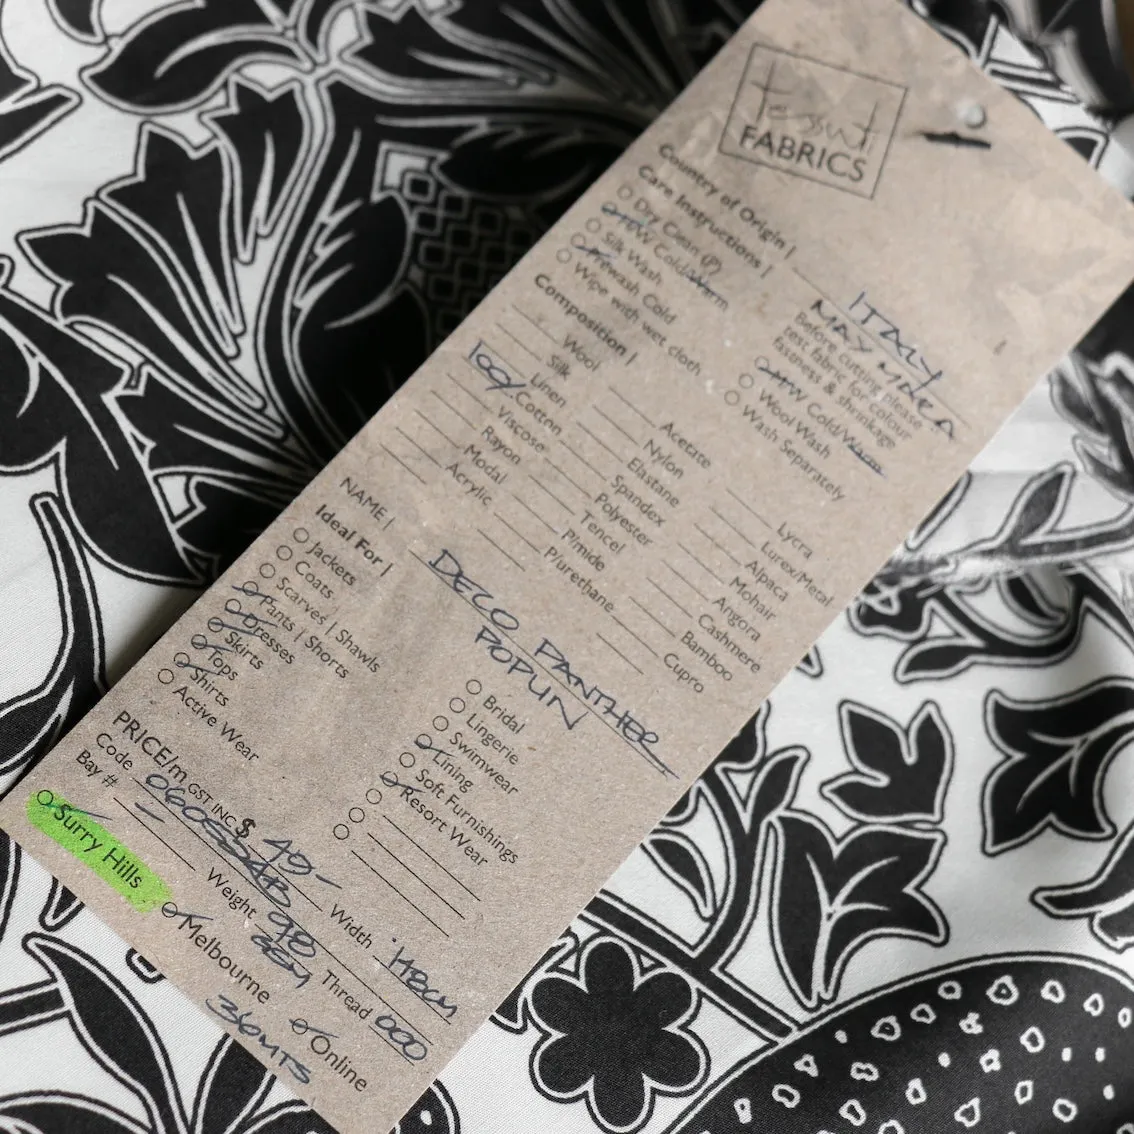 Tessuti
FABRICS
Country of Origin | ITALY
MAX MARA
Care Instructions |
Dry Clean (P)
MW Cold/Warm
Silk Wash
Prewash Cold
Wipe with wet cloth
Before cutting please
test fabric for colour
fastness & shrinkage
MW Cold/Warm
Wool Wash
Wash Separately
Composition |
Wool
Silk
Linen
100% Cotton
Viscose
Rayon
Modal
Acrylic
Acetate
Nylon
Elastane
Spandex
Polyester
Tencel
P/mide
P/urethane
Lycra
Lurex/Metal
Alpaca
Mohair
Angora
Cashmere
Bamboo
Cupro
NAME | DECO PANTHER
POPLIN
Ideal For |
Jackets
Coats
Scarves | Shawls
Pants | Shorts
Dresses
Skirts
Tops
Shirts
Active Wear
Bridal
Lingerie
Swimwear
Lining
Soft Furnishings
Resort Wear
PRICE/m GST INC $ 49-
Width 148cm
Code
Weight 98
Thread 000
Bay #
Surry Hills
Melbourne
36MTS
Online